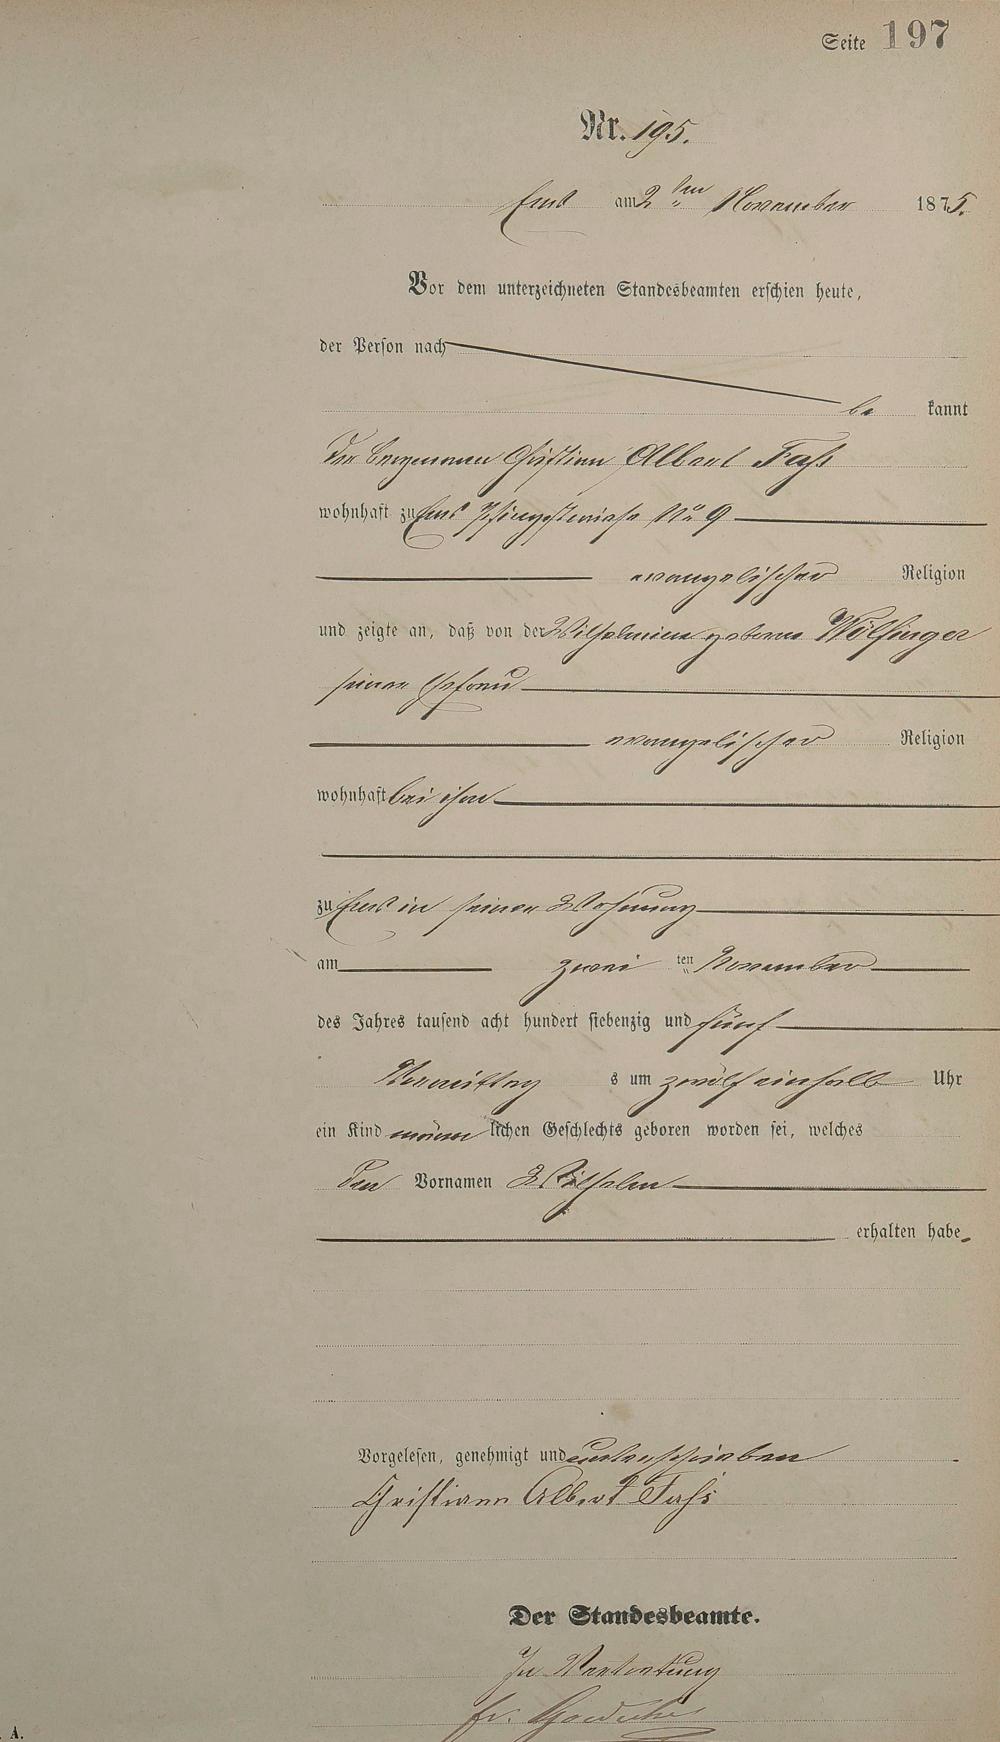 Seite 197
Nr. 195.
Ems am 2ten November 1875.
Vor dem unterzeichneten Standesbeamten erschien heute,
der Person nach
be kannt
der Bergmann Christian Albert Fahs
wohnhaft zu Ems Pfingstwiese No 9
evangelischer Religion
und zeigte an, daß von der Wilhelmine geborne Wölfinger
seiner Ehefrau
evangelischer Religion
wohnhaft bei ihm
zu Ems in seiner Wohnung
am zwei ten November
des Jahres tausend acht hundert siebenzig und fünf
Vormittag s um zwölf einhalb Uhr
ein Kind männ lichen Geschlechts geboren worden sei, welches
den Vornamen Wilhelm
erhalten habe.
Vorgelesen, genehmigt und unterschrieben
Christian Albert Fahs
Der Standesbeamte.
In Vertretung
A.